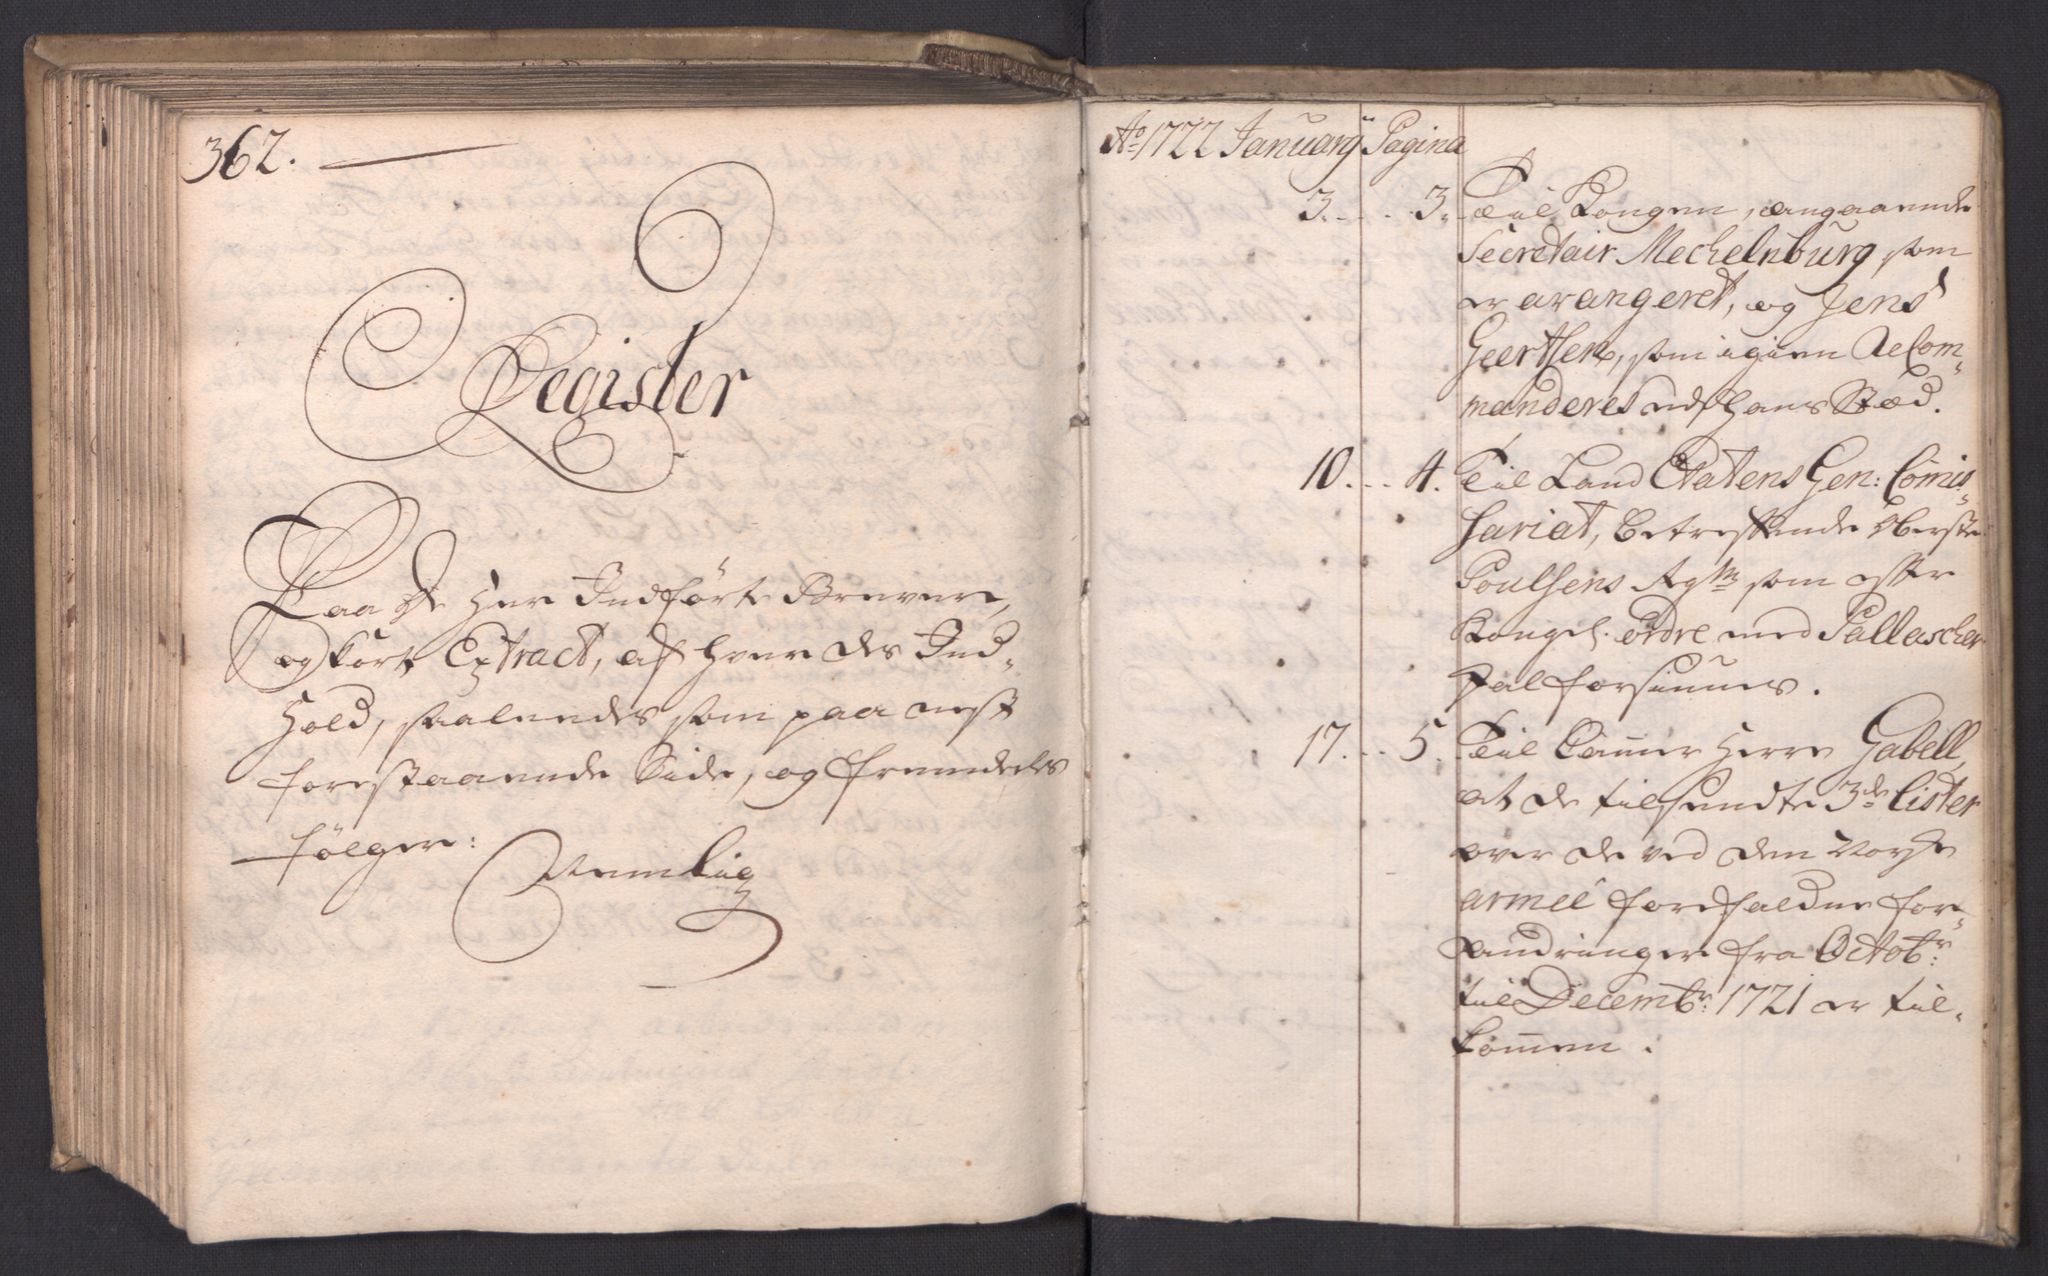 362.
Register
Paa De Her Indførte Brever,
og kort Extract, af hver des Ind-
Hold, saaledes som paa nest
forestaaende Side, og fremdeles
følger:
Nemlig
Ao 1722 January Pagina
3. . . . 3. Til Kongen, angaaende
Secretair Mechelnburg, som
er arangeret, og Jens
Geertsen, som igien Recom-
manderes udj hans Stæd.
10. . . . 4. Til Land Etatens Gen: Comis-
sariat, betreffende Oberste
Poulsens Regm som efter
Kongel. ordre med Pallascher
skal forsiunes.
17. . . . 5. Til Cammer Herre Gabell,
at de tilsendte 3de Lister
over de ved den Norske
armée forefaldne for-
andringer fra Octobr:
til Decembr: 1721 er til-
kommen.